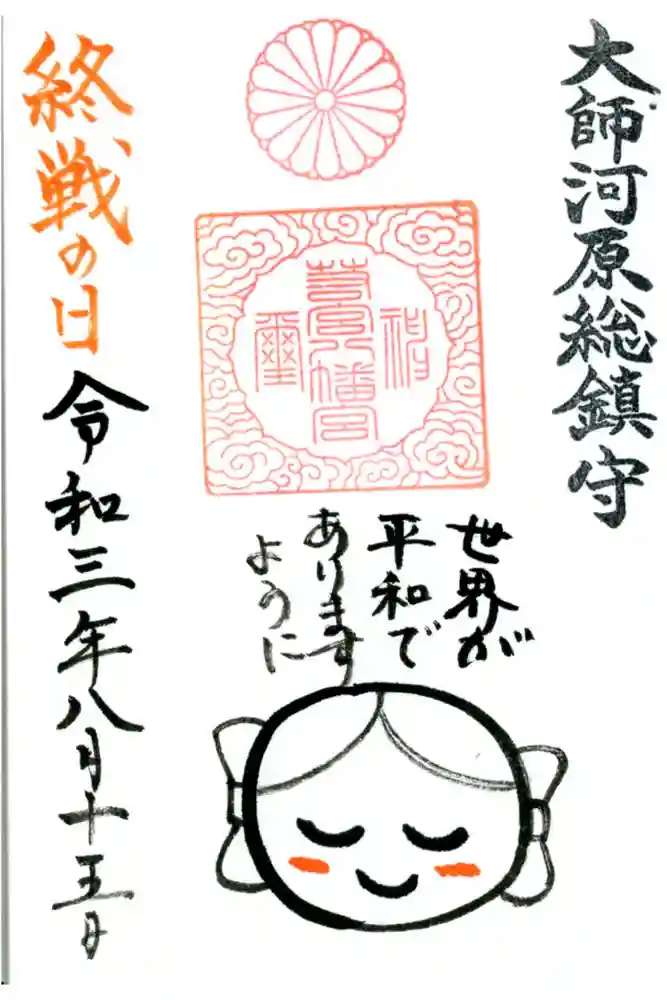 大師河原総鎮守
若宮八幡宮
世界が
平和で
あります
ように
終戦の日
令和三年八月十五日